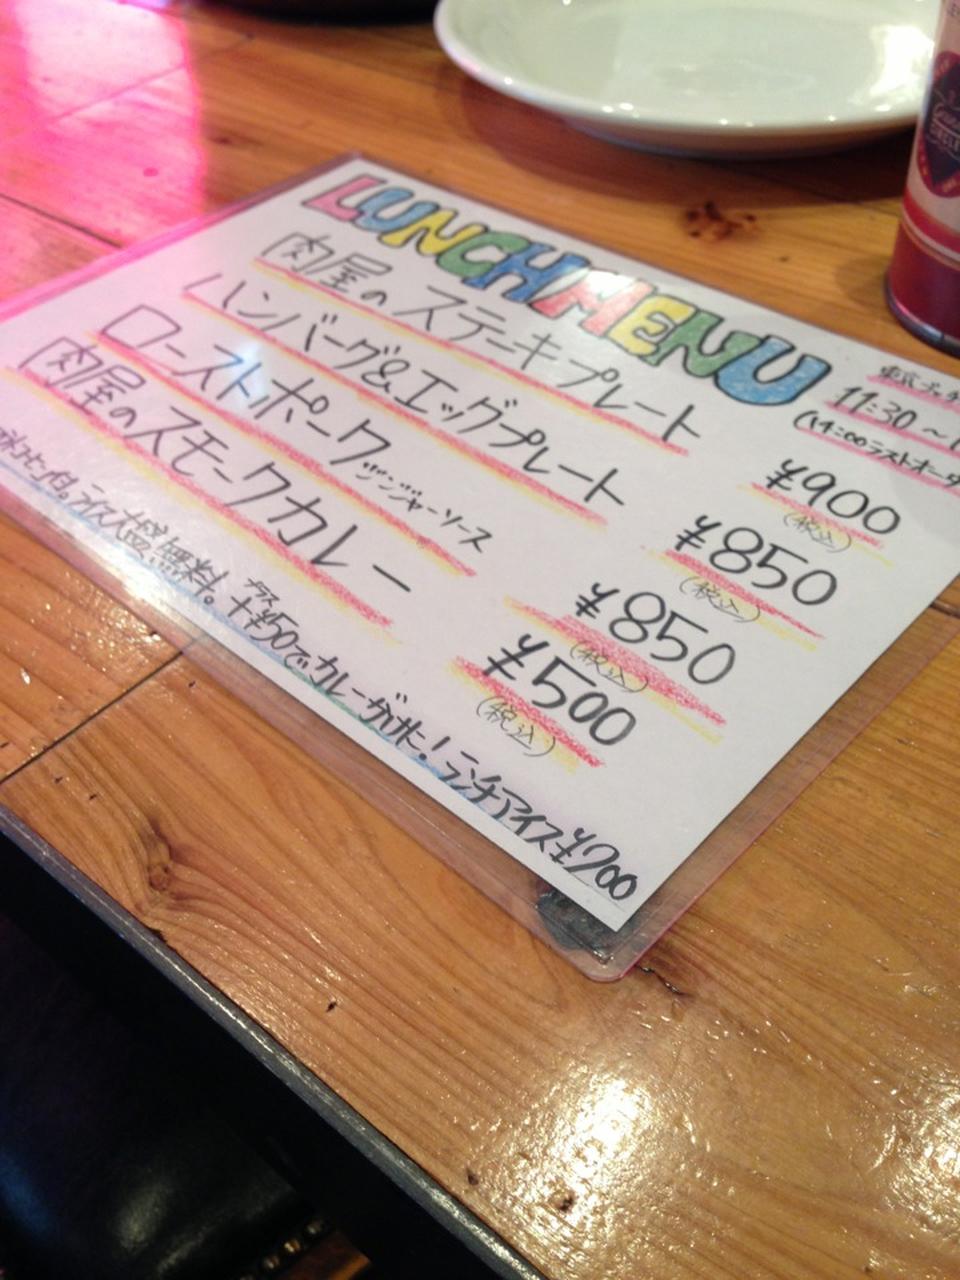 LUNCH MENU
11:30~
(14:00ラストオーダ
肉屋のステーキプレート ¥900
(税込)
ハンバーグ&エッグプレート ¥850
(税込)
ローストポーク ジンジャーソース ¥850
(税込)
肉屋のスモークカレー ¥500
(税込)
ライス大盛無料。+¥50でカレーがけに!ランチアイス¥200
プラス